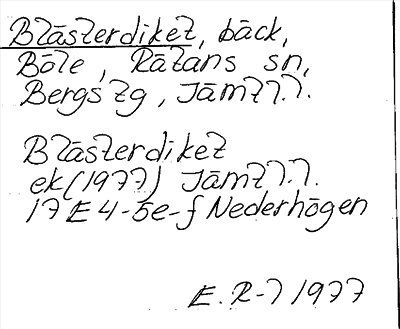 Blästerdiket, bäck,
Böle, Rätans sn,
Bergs tg, Jämtl.l.
Blästerdiket
ek(1977) Jämtl.l.
17E4-5e-f Nederhögen
E.R-l 1977